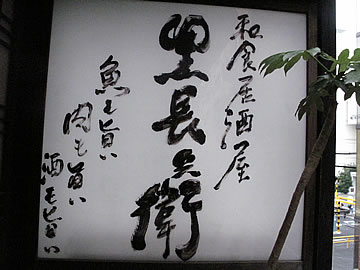 和食居酒屋
黒長兵衛
魚も旨い
肉も旨い
酒も旨い